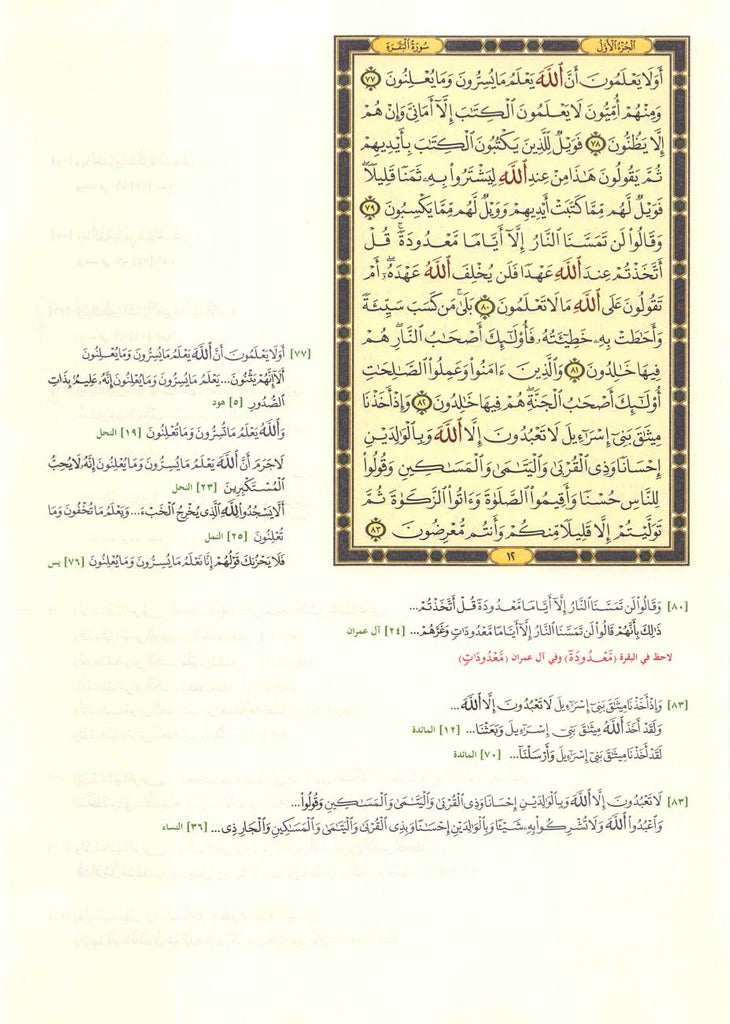 الجزء الأول
سورة البقرة
أَوَلَا يَعْلَمُونَ أَنَّ ٱللَّهَ يَعْلَمُ مَا يُسِرُّونَ وَمَا يُعْلِنُونَ ٧٧
وَمِنْهُمْ أُمِّيُّونَ لَا يَعْلَمُونَ ٱلْكِتَٰبَ إِلَّآ أَمَانِىَّ وَإِنْ هُمْ
إِلَّا يَظُنُّونَ ٧٨ فَوَيْلٌ لِّلَّذِينَ يَكْتُبُونَ ٱلْكِتَٰبَ بِأَيْدِيهِمْ
ثُمَّ يَقُولُونَ هَٰذَا مِنْ عِندِ ٱللَّهِ لِيَشْتَرُوا۟ بِهِۦ ثَمَنًا قَلِيلًا ۖ
فَوَيْلٌ لَّهُم مِّمَّا كَتَبَتْ أَيْدِيهِمْ وَوَيْلٌ لَّهُم مِّمَّا يَكْسِبُونَ ٧٩
وَقَالُوا۟ لَن تَمَسَّنَا ٱلنَّارُ إِلَّآ أَيَّامًا مَّعْدُودَةً ۚ قُلْ
أَتَّخَذْتُمْ عِندَ ٱللَّهِ عَهْدًا فَلَن يُخْلِفَ ٱللَّهُ عَهْدَهُۥٓ ۖ أَمْ
تَقُولُونَ عَلَى ٱللَّهِ مَا لَا تَعْلَمُونَ ٨٠ بَلَىٰ مَن كَسَبَ سَيِّئَةً
وَأَحَٰطَتْ بِهِۦ خَطِيٓـَٔتُهُۥ فَأُو۟لَٰٓئِكَ أَصْحَٰبُ ٱلنَّارِ ۖ هُمْ
فِيهَا خَٰلِدُونَ ٨١ وَٱلَّذِينَ ءَامَنُوا۟ وَعَمِلُوا۟ ٱلصَّٰلِحَٰتِ
أُو۟لَٰٓئِكَ أَصْحَٰبُ ٱلْجَنَّةِ ۖ هُمْ فِيهَا خَٰلِدُونَ ٨٢ وَإِذْ أَخَذْنَا
مِيثَٰقَ بَنِىٓ إِسْرَٰٓءِيلَ لَا تَعْبُدُونَ إِلَّا ٱللَّهَ وَبِٱلْوَٰلِدَيْنِ
إِحْسَانًا وَذِى ٱلْقُرْبَىٰ وَٱلْيَتَٰمَىٰ وَٱلْمَسَٰكِينِ وَقُولُوا۟
لِلنَّاسِ حُسْنًا وَأَقِيمُوا۟ ٱلصَّلَوٰةَ وَءَاتُوا۟ ٱلزَّكَوٰةَ ثُمَّ
تَوَلَّيْتُمْ إِلَّا قَلِيلًا مِّنكُمْ وَأَنتُم مُّعْرِضُونَ ٨٣
١٢
[٧٧] أَوَلَا يَعْلَمُونَ أَنَّ ٱللَّهَ يَعْلَمُ مَا يُسِرُّونَ وَمَا يُعْلِنُونَ
أَلَآ إِنَّهُمْ يَثْنُونَ... يَعْلَمُ مَا يُسِرُّونَ وَمَا يُعْلِنُونَ إِنَّهُۥ عَلِيمٌۢ بِذَاتِ
ٱلصُّدُورِ [٥] هود
وَٱللَّهُ يَعْلَمُ مَا تُسِرُّونَ وَمَا تُعْلِنُونَ [١٩] النحل
لَا جَرَمَ أَنَّ ٱللَّهَ يَعْلَمُ مَا يُسِرُّونَ وَمَا يُعْلِنُونَ إِنَّهُۥ لَا يُحِبُّ
ٱلْمُسْتَكْبِرِينَ [٢٣] النحل
أَلَّا يَسْجُدُوا۟ لِلَّهِ ٱلَّذِى يُخْرِجُ ٱلْخَبْءَ... وَيَعْلَمُ مَا تُخْفُونَ وَمَا
تُعْلِنُونَ [٢٥] النمل
فَلَا يَحْزُنكَ قَوْلُهُمْ إِنَّا نَعْلَمُ مَا يُسِرُّونَ وَمَا يُعْلِنُونَ [٧٦] يس
[٨٠] وَقَالُوا۟ لَن تَمَسَّنَا ٱلنَّارُ إِلَّآ أَيَّامًا مَّعْدُودَةً قُلْ أَتَّخَذْتُمْ...
ذَٰلِكَ بِأَنَّهُمْ قَالُوا۟ لَن تَمَسَّنَا ٱلنَّارُ إِلَّآ أَيَّامًا مَّعْدُودَٰتٍ وَغَرَّهُمْ... [٢٤] آل عمران
لاحظ في البقرة (مَّعْدُودَةً) وفي آل عمران (مَّعْدُودَاتٍ)
[٨٣] وَإِذْ أَخَذْنَا مِيثَٰقَ بَنِىٓ إِسْرَٰٓءِيلَ لَا تَعْبُدُونَ إِلَّا ٱللَّهَ...
وَلَقَدْ أَخَذَ ٱللَّهُ مِيثَٰقَ بَنِىٓ إِسْرَٰٓءِيلَ وَبَعَثْنَا... [١٢] المائدة
لَقَدْ أَخَذْنَا مِيثَٰقَ بَنِىٓ إِسْرَٰٓءِيلَ وَأَرْسَلْنَآ... [٧٠] المائدة
[٨٣] لَا تَعْبُدُونَ إِلَّا ٱللَّهَ وَبِٱلْوَٰلِدَيْنِ إِحْسَانًا وَذِى ٱلْقُرْبَىٰ وَٱلْيَتَٰمَىٰ وَٱلْمَسَٰكِينِ وَقُولُوا۟...
وَٱعْبُدُوا۟ ٱللَّهَ وَلَا تُشْرِكُوا۟ بِهِۦ شَيْـًٔا وَبِٱلْوَٰلِدَيْنِ إِحْسَٰنًا وَبِذِى ٱلْقُرْبَىٰ وَٱلْيَتَٰمَىٰ وَٱلْمَسَٰكِينِ وَٱلْجَارِ ذِى... [٣٦] النساء